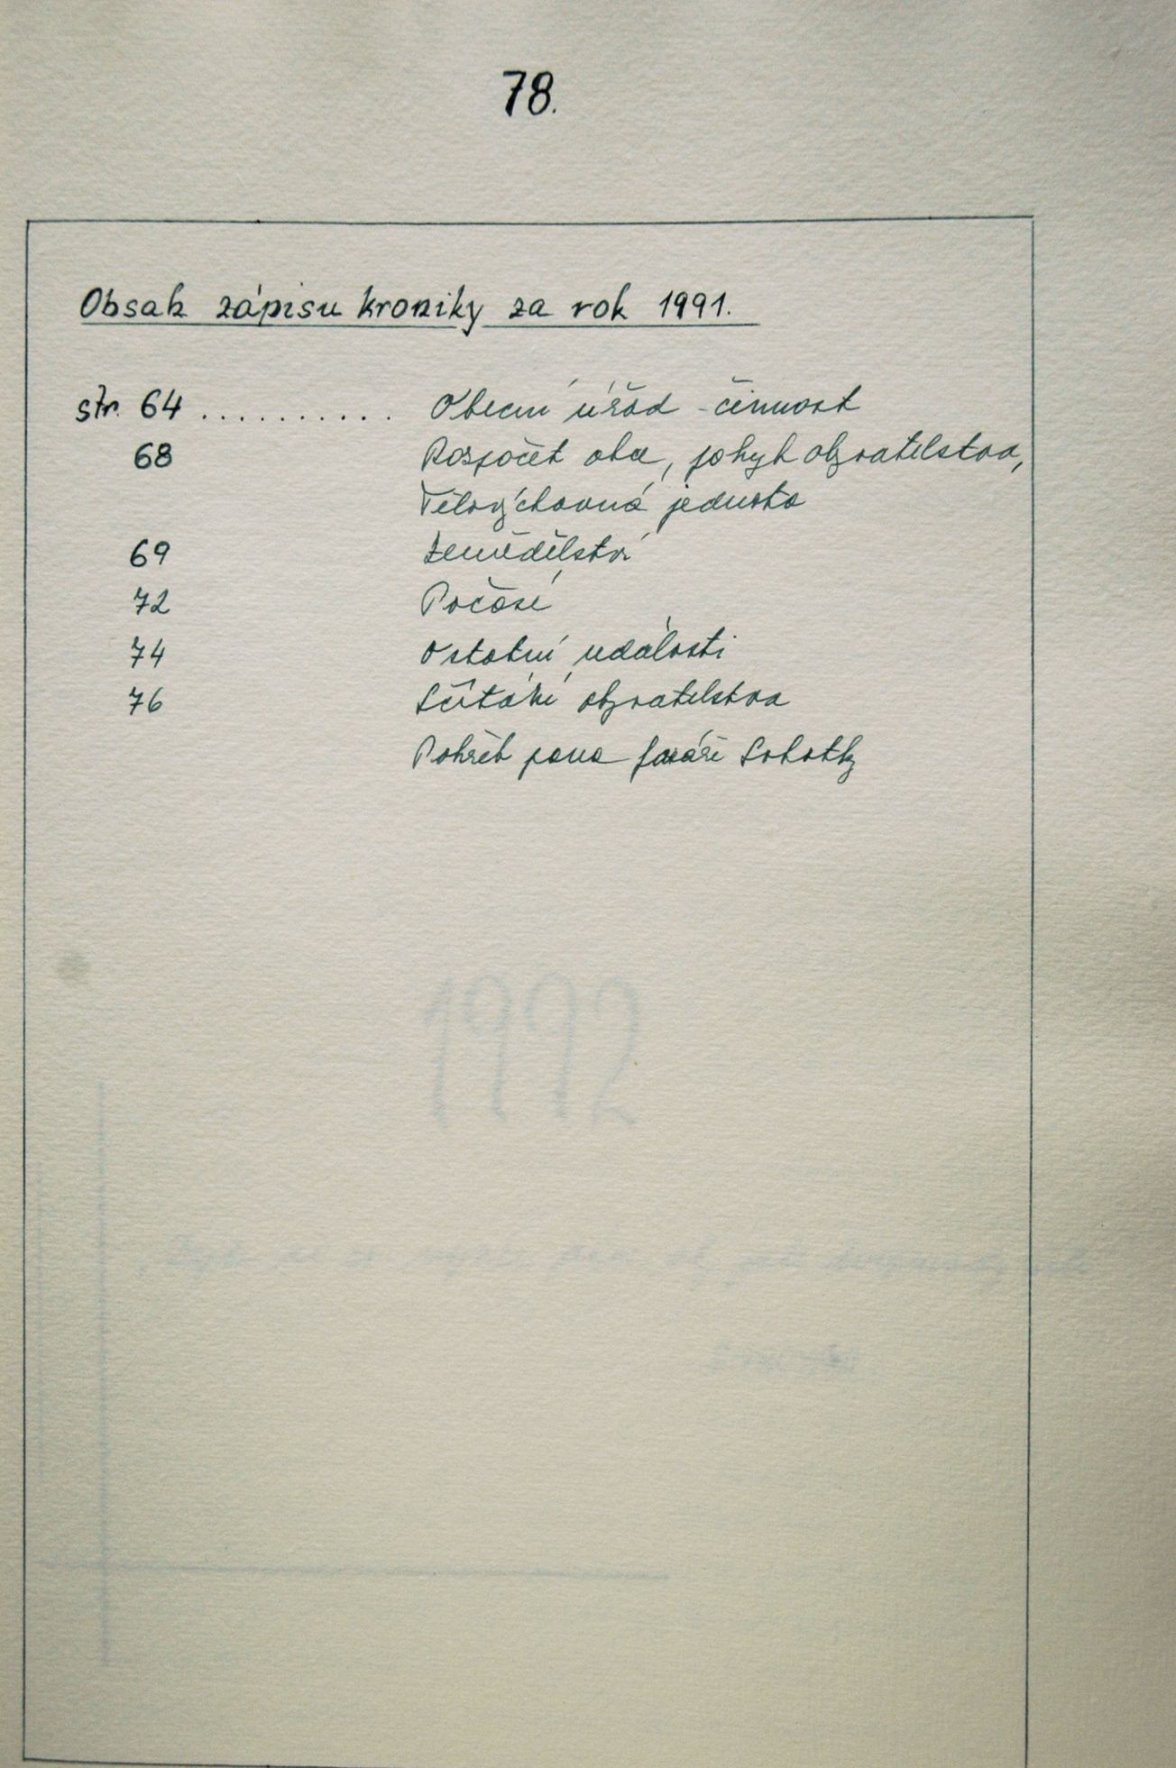 78.
Obsah zápisu kroniky za rok 1991.
str. 64 .......... Obecní úřad - činnost
68 Rozpočet obce, pohyb obyvatelstva,
Tělovýchovná jednota
69 Zemědělství
72 Počasí
74 Ostatní události
76 Sčítání obyvatelstva
Pohřeb pana faráře Sobotky
1992